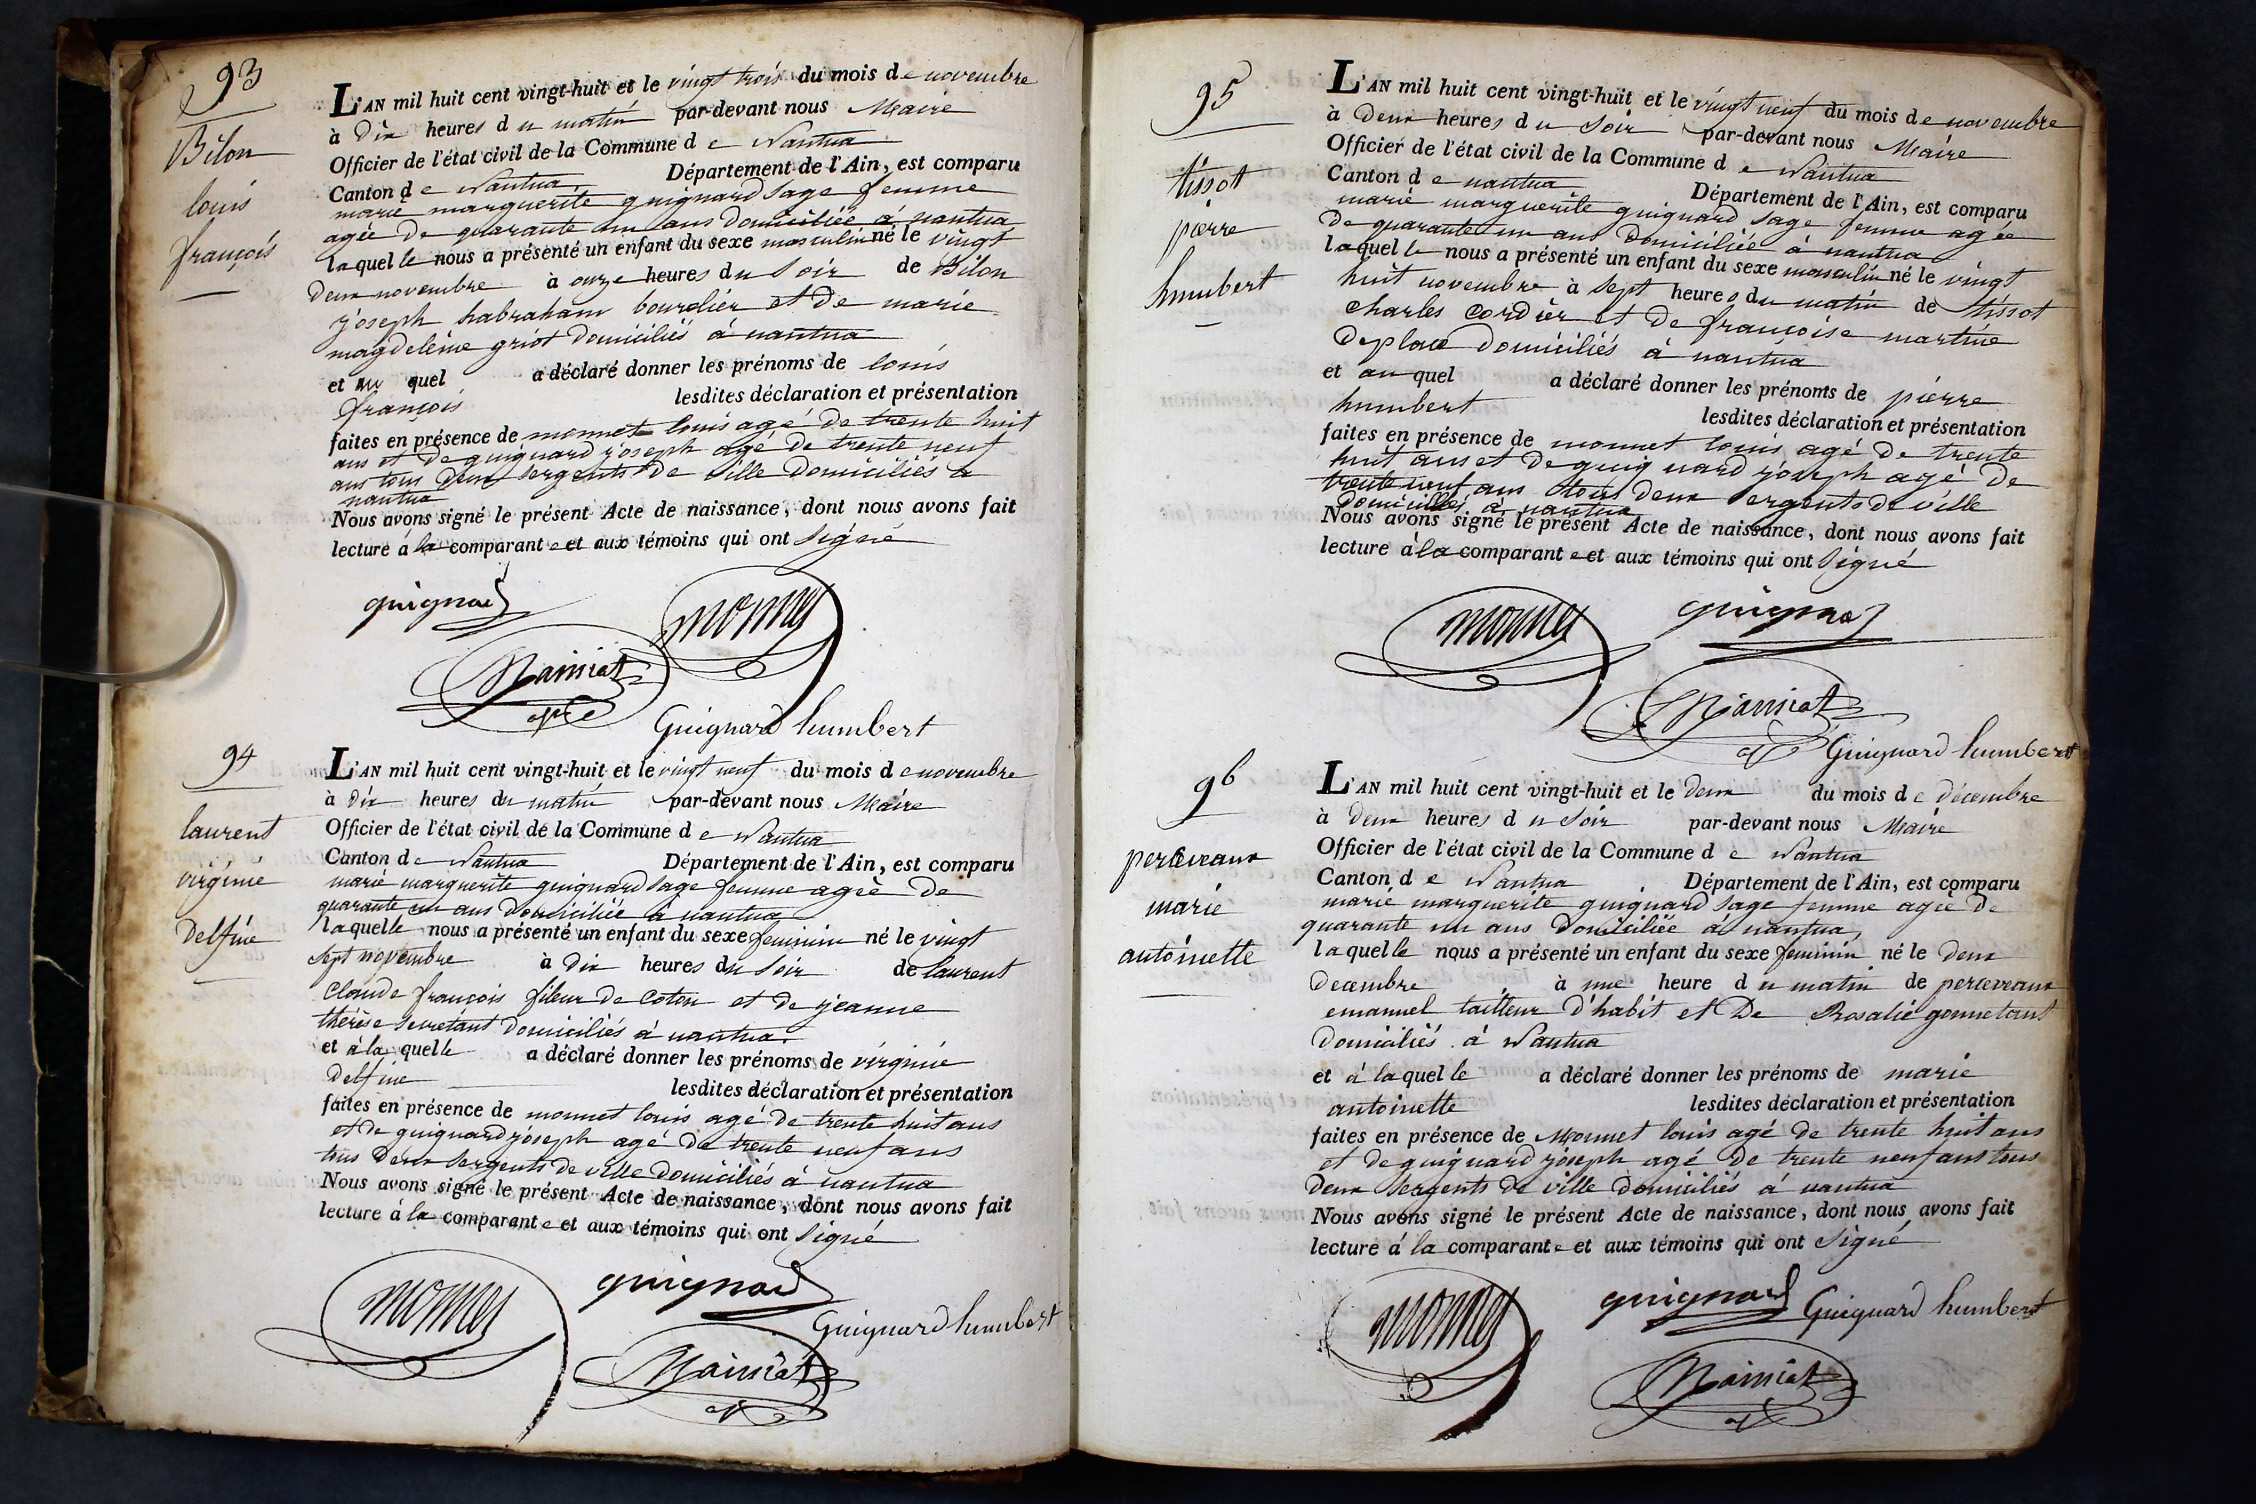 93
Bilon
louis
françois
L'AN mil huit cent vingt-huit et le vingt trois du mois de novembre
à dix heures du matin par-devant nous Maire
Officier de l'état civil de la Commune de Nantua
Canton de Nantua Département de l'Ain, est comparu
marie marguerite guignard sage femme
agée de quarante un ans domiciliée à nantua
laquelle nous a présenté un enfant du sexe masculin né le vingt
deux novembre à onze heures du soir de Bilon
joseph habraham bourelier et de marie
magdeleine griot domiciliés à nantua
et au quel a déclaré donner les prénoms de louis
françois lesdites déclaration et présentation
faites en présence de monnet louis agé de trente huit
ans et de guignard joseph agé de trente neuf
ans tous deux sergents de ville domiciliés à
nantua
Nous avons signé le présent Acte de naissance, dont nous avons fait
lecture à la comparante et aux témoins qui ont signé
guignard
monnet
Guignard humbert
94
laurent
virginie
delfine
L'AN mil huit cent vingt-huit et le vingt neuf du mois de novembre
à dix heures du matin par-devant nous Maire
Officier de l'état civil de la Commune de Nantua
Canton de Nantua Département de l'Ain, est comparu
marie marguerite guignard sage femme agée de
quarante un ans domiciliée à nantua
laquelle nous a présenté un enfant du sexe feminin né le vingt
sept novembre à dix heures du soir de laurent
Claude françois fileur de coton et de jeanne
thérèse secretant domiciliés à nantua
et à la quelle a déclaré donner les prénoms de virginie
delfine lesdites déclaration et présentation
faites en présence de monnet louis agé de trente huit ans
et de guignard joseph agé de trente neuf ans
tous deux sergents de ville domiciliés à nantua
Nous avons signé le présent Acte de naissance, dont nous avons fait
lecture à la comparante et aux témoins qui ont signé
monnet
guignard
Guignard humbert
95
tissot
pierre
humbert
L'AN mil huit cent vingt-huit et le vingt neuf du mois de novembre
à deux heures du soir par-devant nous Maire
Officier de l'état civil de la Commune de Nantua
Canton de nantua Département de l'Ain, est comparu
marie marguerite guignard sage femme agée
de quarante un ans domiciliée à nantua
laquelle nous a présenté un enfant du sexe masculin né le vingt
huit novembre à sept heures du matin de tissot
charles cordier et de françoise martine
deplace domiciliés à nantua
et au quel a déclaré donner les prénoms de pierre
humbert lesdites déclaration et présentation
faites en présence de monnet louis agé de trente
huit ans et de guignard joseph agé de
trente neuf ans tous deux sergents de ville
domiciliés à nantua
Nous avons signé le présent Acte de naissance, dont nous avons fait
lecture à la comparante et aux témoins qui ont signé
monnet
guignard
Guignard humbert
96
perceveaux
marie
antoinette
L'AN mil huit cent vingt-huit et le deux du mois de décembre
à deux heures du soir par-devant nous Maire
Officier de l'état civil de la Commune de Nantua
Canton de Nantua Département de l'Ain, est comparu
marie marguerite guignard sage femme agée de
quarante un ans domiciliée à nantua
laquelle nous a présenté un enfant du sexe feminin né le deux
decembre à une heure du matin de perceveaux
emanuel tailleur d'habit et De Rosalie gonnetant
domiciliés à Nantua
et à laquelle a déclaré donner les prénoms de marie
antoinette lesdites déclaration et présentation
faites en présence de Monnet louis agé de trente huit ans
et de guignard joseph agé de trente neuf ans tous
deux sergents de ville domiciliés à nantua
Nous avons signé le présent Acte de naissance, dont nous avons fait
lecture à la comparante et aux témoins qui ont signé
monnet
guignard
Guignard humbert